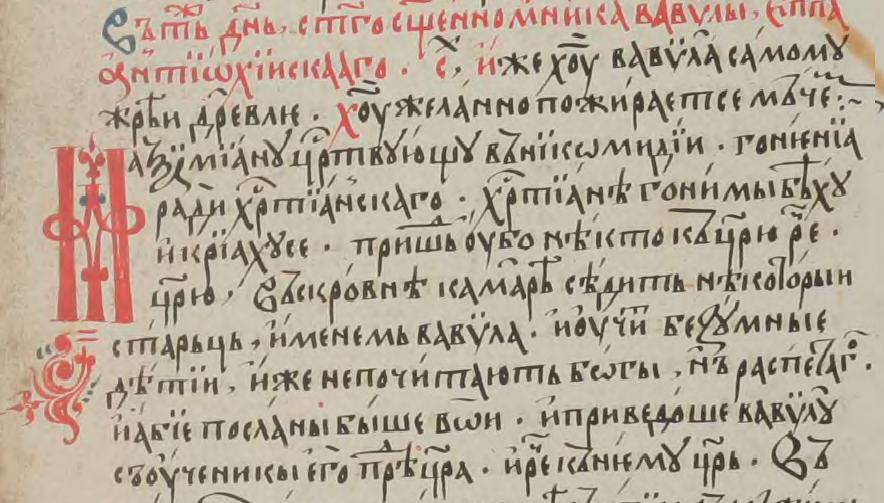 Въ тъ́ж дн҃ь, ст҃го сщ҃енномн҃ика вавѵлы, еп҃па
а҆нтїѡхїискааго . с҃х, и҆же хв҃ꙋ вавѵ̈ла самомꙋ
жрътїи дрѣвлꙗ . хв҃ꙋ желанно пожираетсе мъче :~
Маѯїмїанꙋ цр҃твꙋющꙋ въ нїкѡмидїи . гонѥнїа
ради хр҃тїанскаго . хр҃тїанѣ гонимы бѣхꙋ
и҆ крїахꙋсе . пришьд оубо нѣкто къ цр҃ю рч҃е .
цр҃ю, въ скровнѣ камарѣ сѣдить нѣкоторыи
старьць, и҆менемь вавѵ̈ла . и҆ оучи беꙁꙋмные
дѣтїи, и҆же не почитають б҃ѡгы, нъ распетаг҃ .
и҆ абїе послани быше вои . и҆ приведоше вавѵ̈лꙋ
съ оученикы ѥго прѣд цр҃а . и҆ рч҃е къ нѥмꙋ цр҃ь . Въ